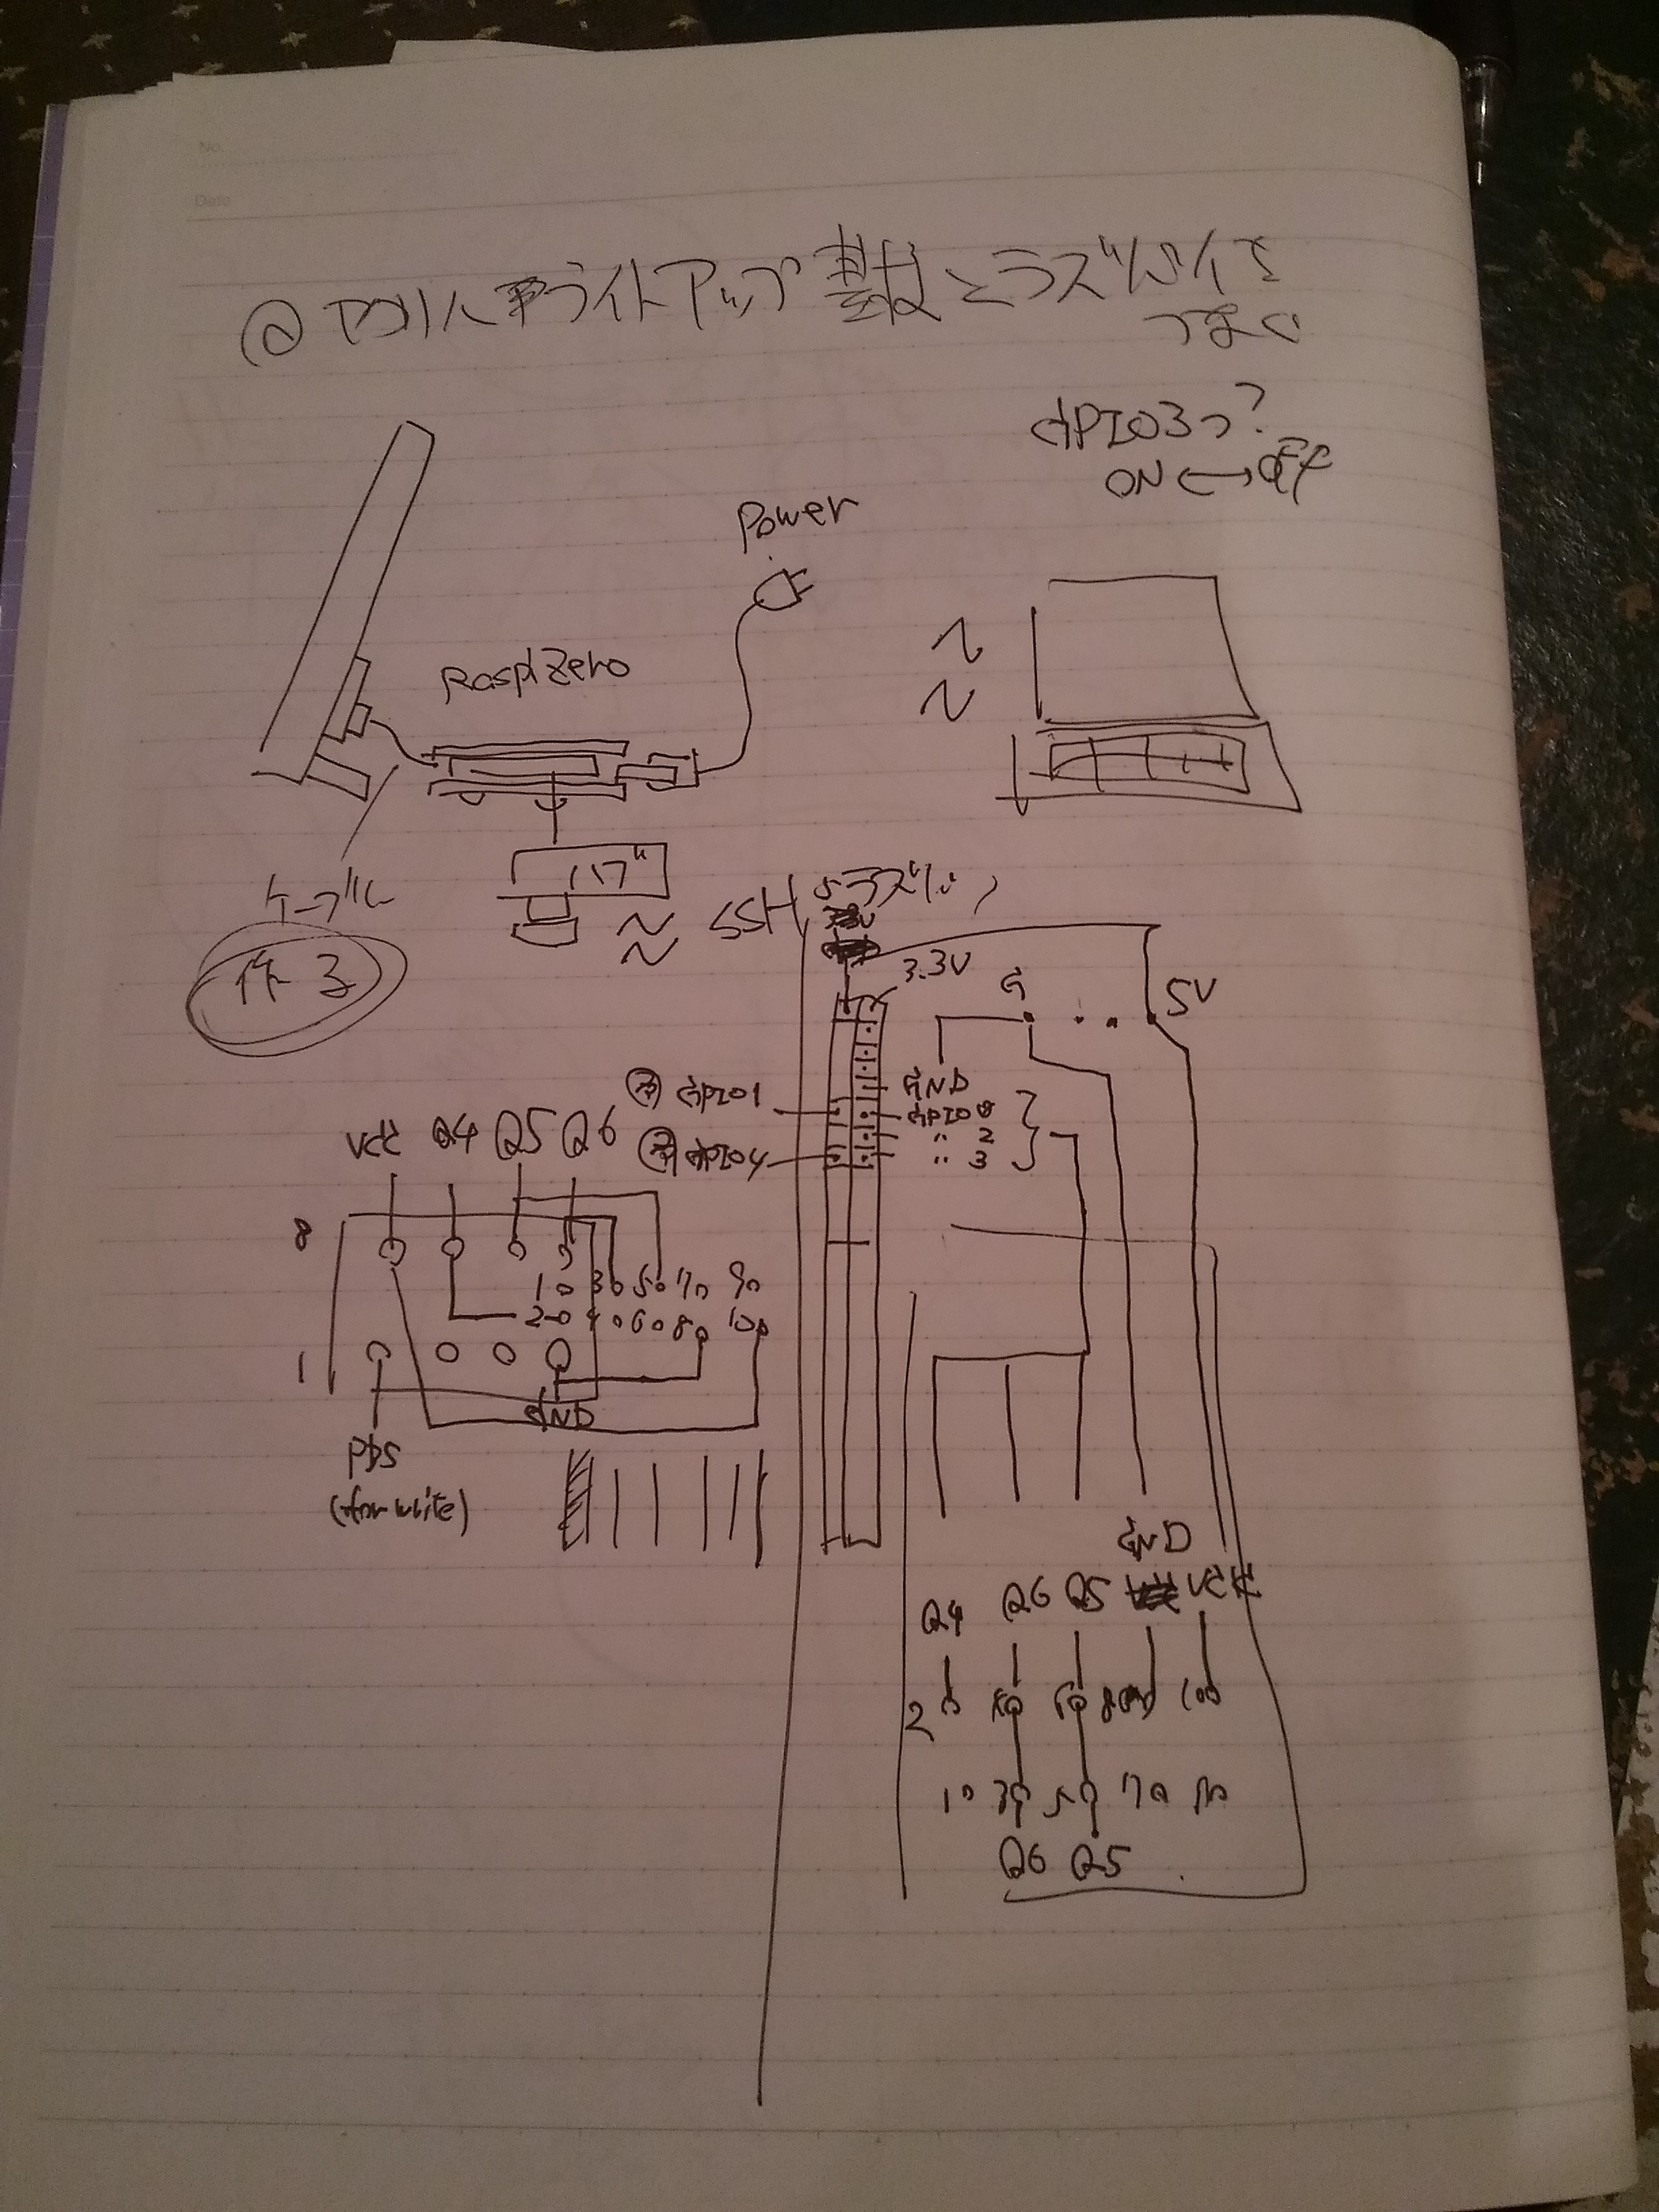 No.
Date
@アクリルライトアップ 基板とラズパイを
つなぐ
GPIO3つ?
ON ←→ OFF
Power
RaspiZero
ケーブル
作る
ハブ
SSH
ラズパイ
3.3V
G
5V
GPIO1
GND
GPIO0
GPIO4
〃 2
〃 3
Vcc Q4 Q5 Q6
8
1 3 5 7 9
2 4 6 8 10
1
GND
(for write)
GND
Q4 Q6 Q5 Vcc
2 4 6 8 10
1 3 5 7 9
Q6 Q5